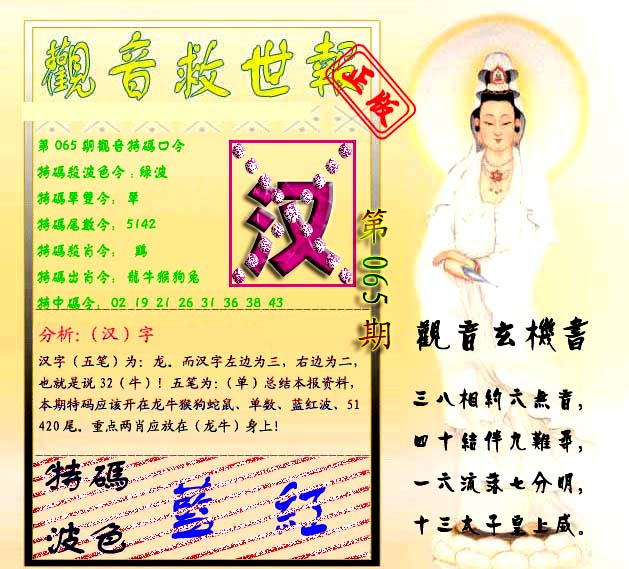 觀音救世報
正版
第065期觀音特碼口令
特碼殺波色令：綠波
特碼單雙令： 單
特碼尾數令： 5142
特碼殺肖令： 鷄
特碼出肖令： 龍牛猴狗兔
特中碼令： 02 19 21 26 31 36 38 43
汉
第065期
分析:（汉）字
汉字（五笔）为：龙。而汉字左边为三，右边为二，
也就是说32（牛）！五笔为:（单）总结本报资料，
本期特码应该开在龙牛猴狗蛇鼠、单数、蓝红波、51
420尾。重点两肖应放在（龙牛）身上！
特碼
波色
藍 紅
觀音玄機書
三八相約六無音，
四十結伴九難尋，
一六流落七分明，
十三太子皇上威。